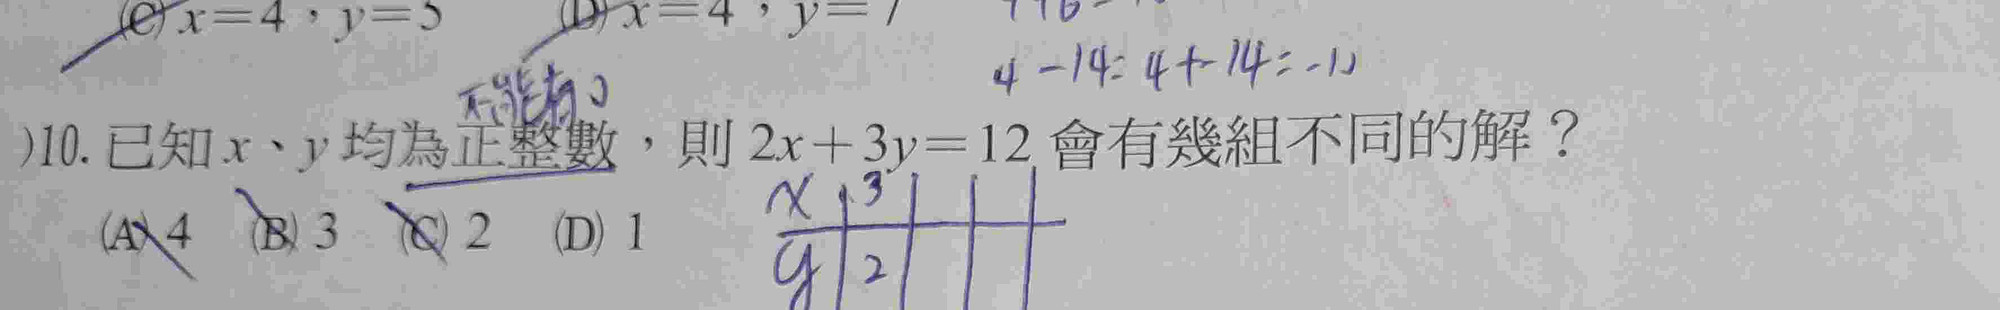 (C) x=4，y=5 (D) x=4，y=7
4-14=4+-14=-10
不能有0
)10. 已知 x、y 均為正整數，則 2x+3y=12 會有幾組不同的解？
(A) 4 (B) 3 (C) 2 (D) 1
x 3
y 2